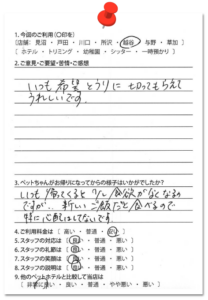 1.今回のご利用(○印を)
[店舗: 見沼 ・ 戸田 ・ 川口 ・ 所沢 ・ 越谷 ・ 与野 ・ 草加 ]
[ ホテル ・ トリミング ・ 幼稚園 ・ シッター ・ 一時預かり ]
2.ご意見・ご要望・苦情・ご感想
いつも希望どうりに切ってもらえて
うれしいです。
3.ペットちゃんがお帰りになってからの様子はいかがでしたか?
いつも帰ってくると
食欲がなくなるの
ですが、新しいご飯だと食べるので
特に心配はしてないです。
4.ご利用料金は [ 高い ・ 普通 ・ 安い ]
5.スタッフの対応は [ 良い ・ 普通 ・ 悪い ]
6.スタッフの礼節は [ 良い ・ 普通 ・ 悪い ]
7.スタッフの笑顔は [ 良い ・ 普通 ・ 悪い ]
8.スタッフの説明は [ 良い ・ 普通 ・ 悪い ]
9.他のペットホテルと比較して当店は
[ 非常に良い ・ 良い ・ 普通 ・ やや悪い ・ 悪い ]